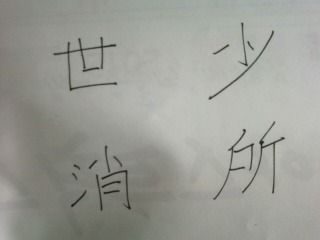 世 少
消 所